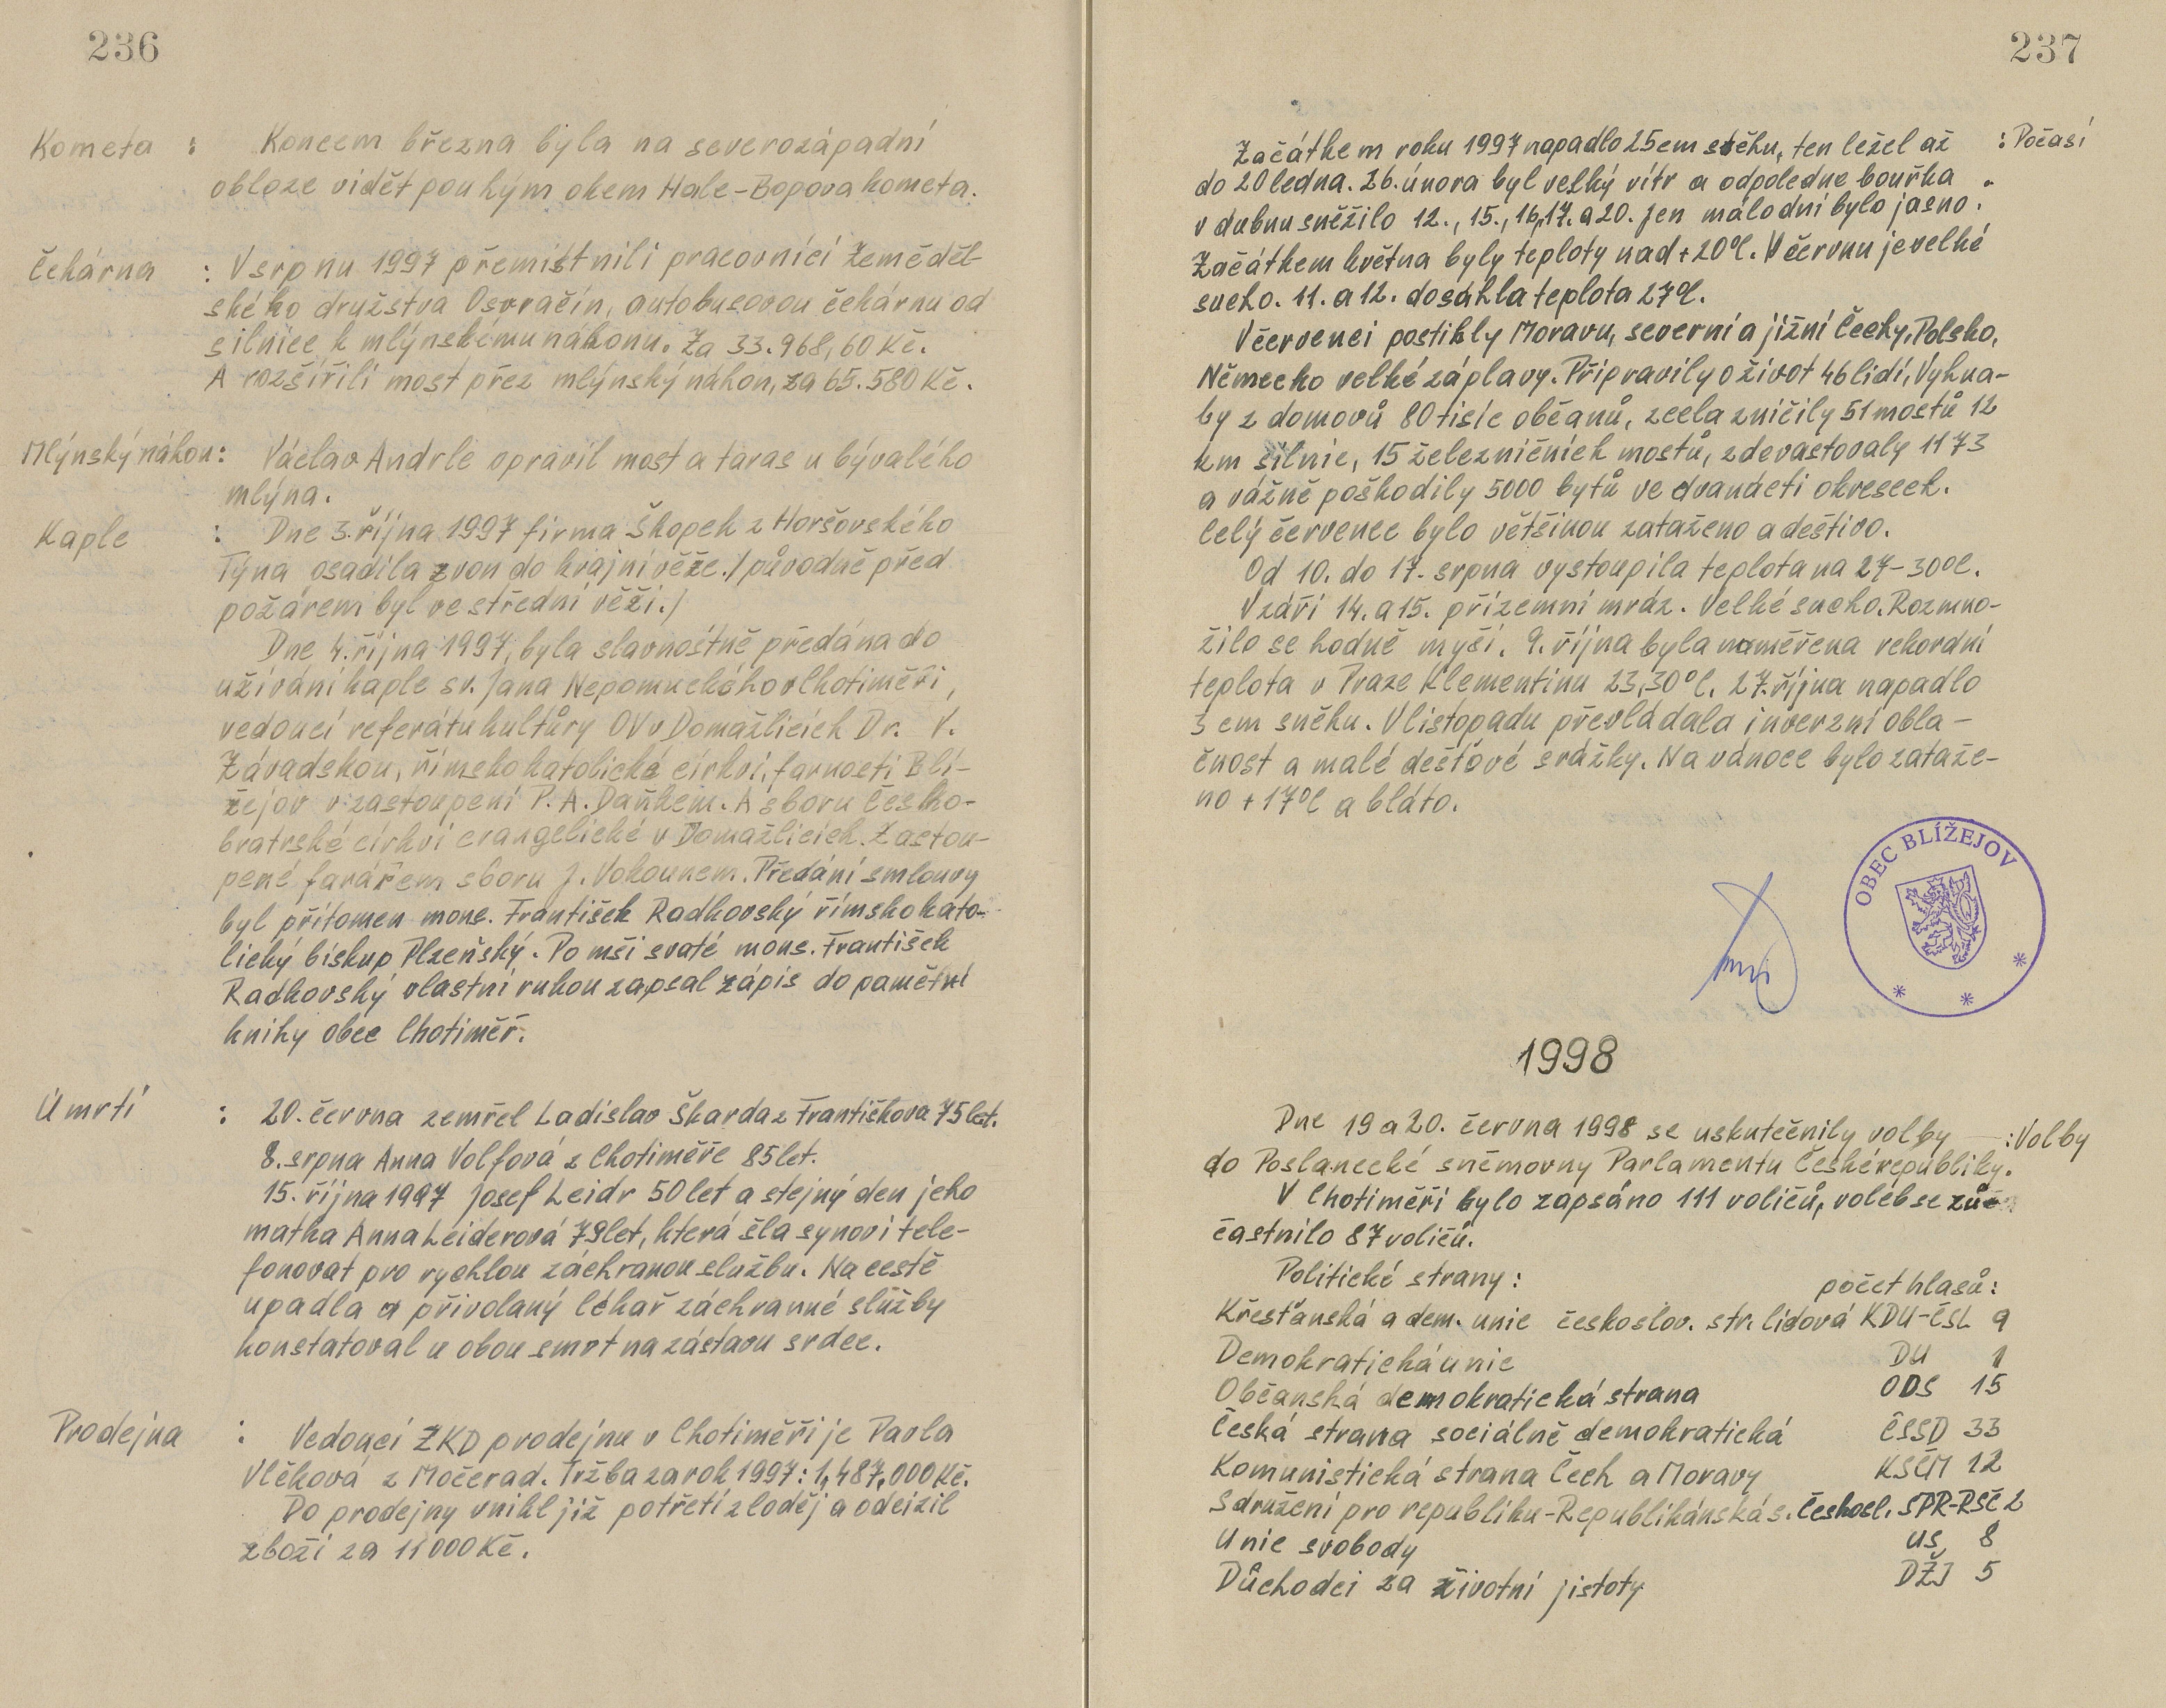 236
Kometa : Koncem března byla na severozápadní
obloze vidět pouhým okem Hale-Bopova kometa.
Čekárna : V srpnu 1997 přemistnili pracovníci Zeměděl-
ského družstva Osvračín, autobusovou čekárnu od
silnice k mlýnskému náhonu. Za 33.968,60 Kč.
A rozšířili most přez mlýnský náhon, za 65.580 Kč.
Mlýnský náhon: Václav Andrle opravil most a taras u bývalého
mlýna.
Kaple : Dne 3. října 1997 firma Škopek z Horšovského
Týna osadila zvon do krajní věže. / původně před
požárem byl ve střední věži. /
Dne 4. října 1997, byla slavnostně předána do
užívání kaple sv. Jana Nepomuckého v Chotiměři,
vedoucí referátu kultůry OV v Domažlicích Dr. V.
Závadskou, římsko katolické církvi, farnosti Blí-
žejov v zastoupení P. A. Daňkem. A sboru Česko-
bratrské církvi evangelické v Domažlicích. Zastou-
pené farářem sboru J. Vokounem. Předání smlouvy
byl přítomen mons. František Radkovský římsko kato-
lický biskup Plzeňský. Po mši svaté mons. František
Radkovský vlastní rukou zapsal zápis do pamětní
knihy obce Chotiměř.
Úmrtí : 20. června zemřel Ladislav Škarda z Františkova 75 let.
8. srpna Anna Volfová z Chotiměře 85 let.
15. října 1997 Josef Leidr 50 let a stejný den jeho
matka Anna Leiderová 79 let, která šla synovi tele-
fonovat pro rychlou záchranou službu. Na cestě
upadla a přivolaný lékař záchranné služby
konstatoval u obou smrt na zástavu srdce.
Prodejna : Vedoucí ZKD prodejnu v Chotiměři je Pavla
Vlčková z Močerad. Tržba za rok 1997: 1,487,000 Kč.
Do prodejny vnikl již potřetí zloděj a odcizil
zboží za 11 000 Kč.
237
Začátkem roku 1997 napadlo 25 cm sněhu, ten ležel až : Počasí
do 20 ledna. 26. února byl velký vítr a odpoledne bouřka.
v dubnu sněžilo 12., 15., 16, 17. a 20. jen málo dní bylo jasno.
Začátkem května byly teploty nad +20°C. V červnu je velké
sucho. 11. a 12. dosáhla teplota 27°C.
V červenci postihly Moravu, severní a jižní Čechy, Polsko,
Německo velké záplavy. Připravily o život 46 lidí, Vyhna-
ly z domovů 80 tisíc občanů, zcela zničily 51 mostů 12
km silnic, 15 železničních mostů, zdevastovaly 1173
a vážně poškodily 5000 bytů ve dvanácti okresech.
Celý červenec bylo většinou zataženo a deštivo.
Od 10. do 17. srpna vystoupila teplota na 27-30°C.
V září 14. a 15. přízemní mráz. Velké sucho. Rozmno-
žilo se hodně myší. 9. října byla naměřena rekordní
teplota v Praze Klementinu 23,30°C. 27. října napadlo
3 cm sněhu. V listopadu převládala inverzní obla-
čnost a malé dešťové srážky. Na vánoce bylo zataže-
no + 17°C a bláto.
OBEC BLÍŽEJOV
1998
Dne 19 a 20. června 1998 se uskutečnily volby :Volby
do Poslanecké sněmovny Parlamentu České republiky.
V Chotiměři bylo zapsáno 111 voličů, voleb se zů-
častnilo 87 voličů.
Politické strany: počet hlasů:
Křesťanská a dem. unie českoslov. str. lidová KDU-ČSL 9
Demokratická unie DU 1
Občanská demokratická strana ODS 15
Česká strana sociálně demokratická ČSSD 33
Komunistická strana Čech a Moravy KSČM 12
Sdružení pro republiku-Republikánská s. Českosl. SPR-RSČ 2
Unie svobody US 8
Důchodci za životní jistoty DŽJ 5